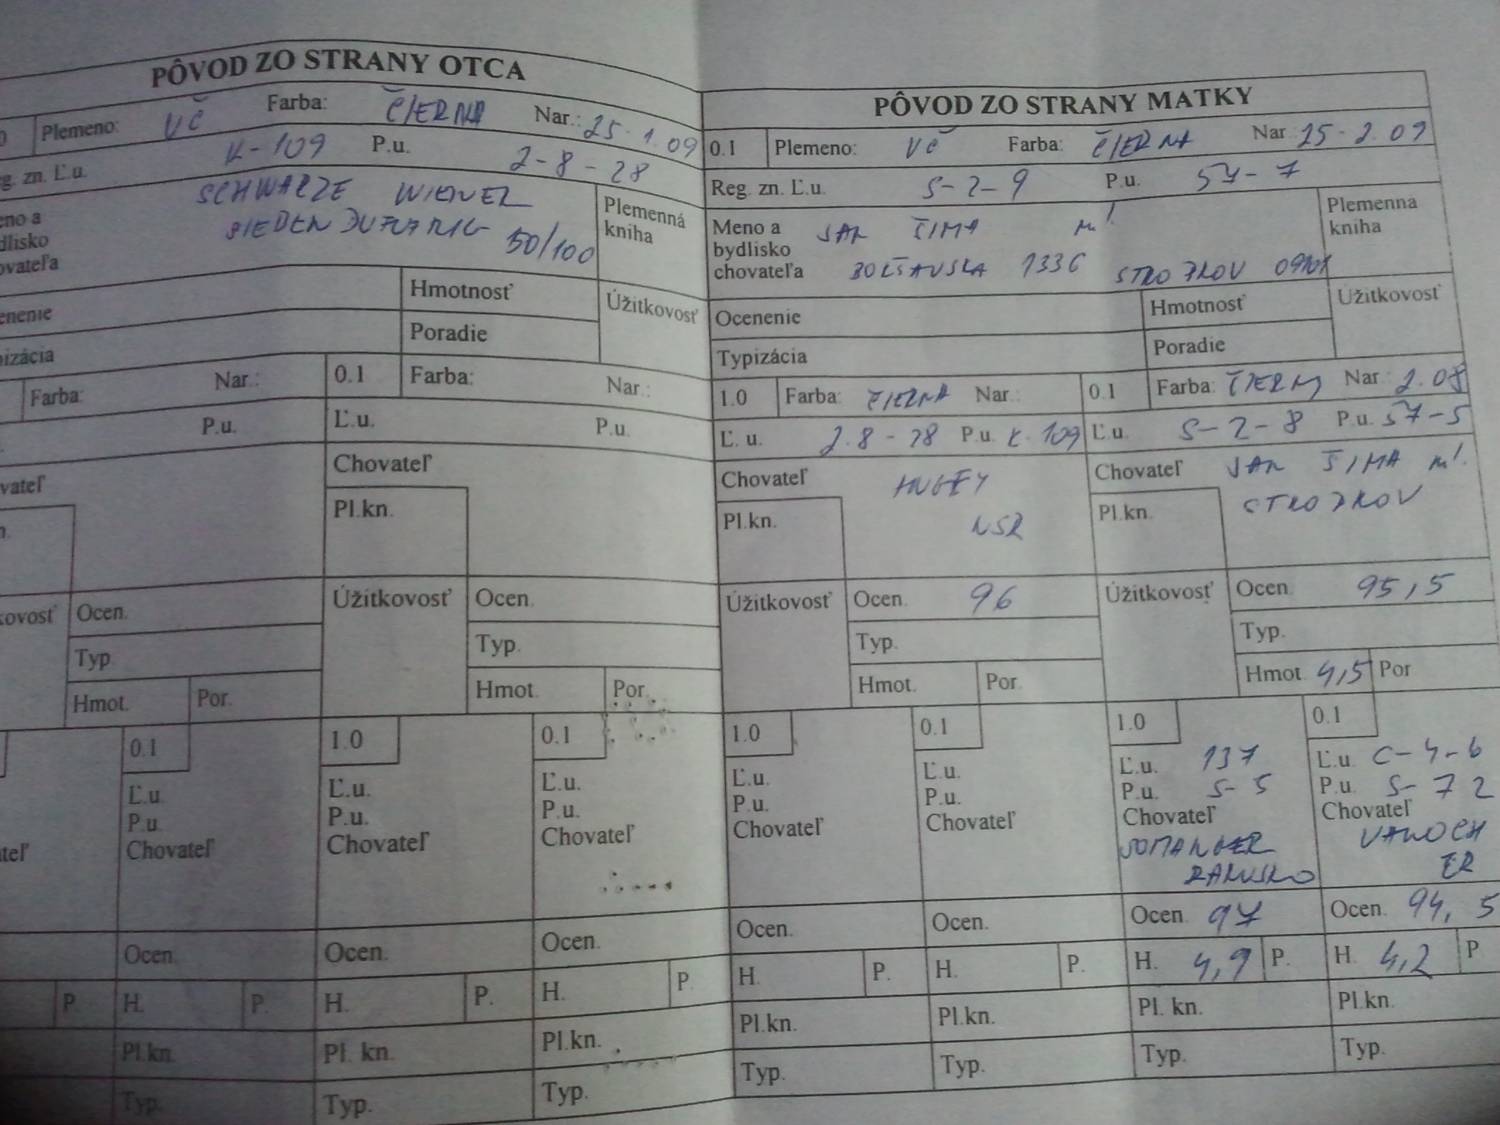 PÔVOD ZO STRANY OTCA
0 Plemeno: VČ Farba: ČIERNA Nar.: 25.1.09
eg. zn. Ľ.u. K-109 P.u. 2-8-28
eno a SCHWARZE WIENER Plemenná
dlisko kniha
ovateľa 50/100
enenie Hmotnosť Úžitkovosť
pizácia Poradie
Farba: Nar.: 0.1 Farba: Nar.:
P.u. Ľ.u. P.u.
vateľ Chovateľ
n. Pl.kn.
kovosť Ocen. Úžitkovosť Ocen.
Typ Typ.
Hmot. Por. Hmot. Por.
0.1 1.0 0.1
Ľ.u. Ľ.u. Ľ.u.
P.u. P.u. P.u.
ateľ Chovateľ Chovateľ Chovateľ
Ocen. Ocen. Ocen.
P. H. P. H. P. H. P.
Pl.kn. Pl. kn. Pl.kn.
Typ. Typ. Typ.
PÔVOD ZO STRANY MATKY
0.1 Plemeno: VČ Farba: ČIERNA Nar.: 25-2.09
Reg. zn. Ľ.u. S-2-9 P.u. 57-7
Meno a JAN ŠIMA ml. Plemenna
bydlisko kniha
chovateľa 1336
Ocenenie Hmotnosť Úžitkovosť
Typizácia Poradie
1.0 Farba: ČIERNA Nar.: 0.1 Farba: Nar.: 2.08
Ľ. u. 2.8-28 P.u. K.109 Ľ.u. S-2-8 P.u. 57-5
Chovateľ Chovateľ JAN ŠIMA ml.
Pl.kn. NSR Pl.kn.
Úžitkovosť Ocen. 96 Úžitkovosť Ocen. 95,5
Typ. Typ.
Hmot. Por. Hmot. 4,5 Por
1.0 0.1 1.0 0.1
Ľ.u. Ľ.u. Ľ.u. 137 Ľ.u. C-4-6
P.u. P.u. P.u. S-5 P.u. S-72
Chovateľ Chovateľ Chovateľ Chovateľ
Ocen. Ocen. Ocen. 97 Ocen. 94,5
H. P. H. P. H. 4,9 P. H. 4,2 P
Pl.kn. Pl.kn. Pl. kn. Pl.kn.
Typ. Typ. Typ. Typ.